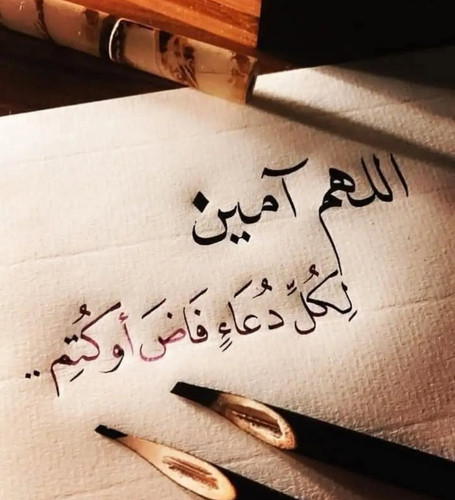 اللهم آمين
لِكُلِّ دُعَاءٍ فَاضَ أو كُتِم..